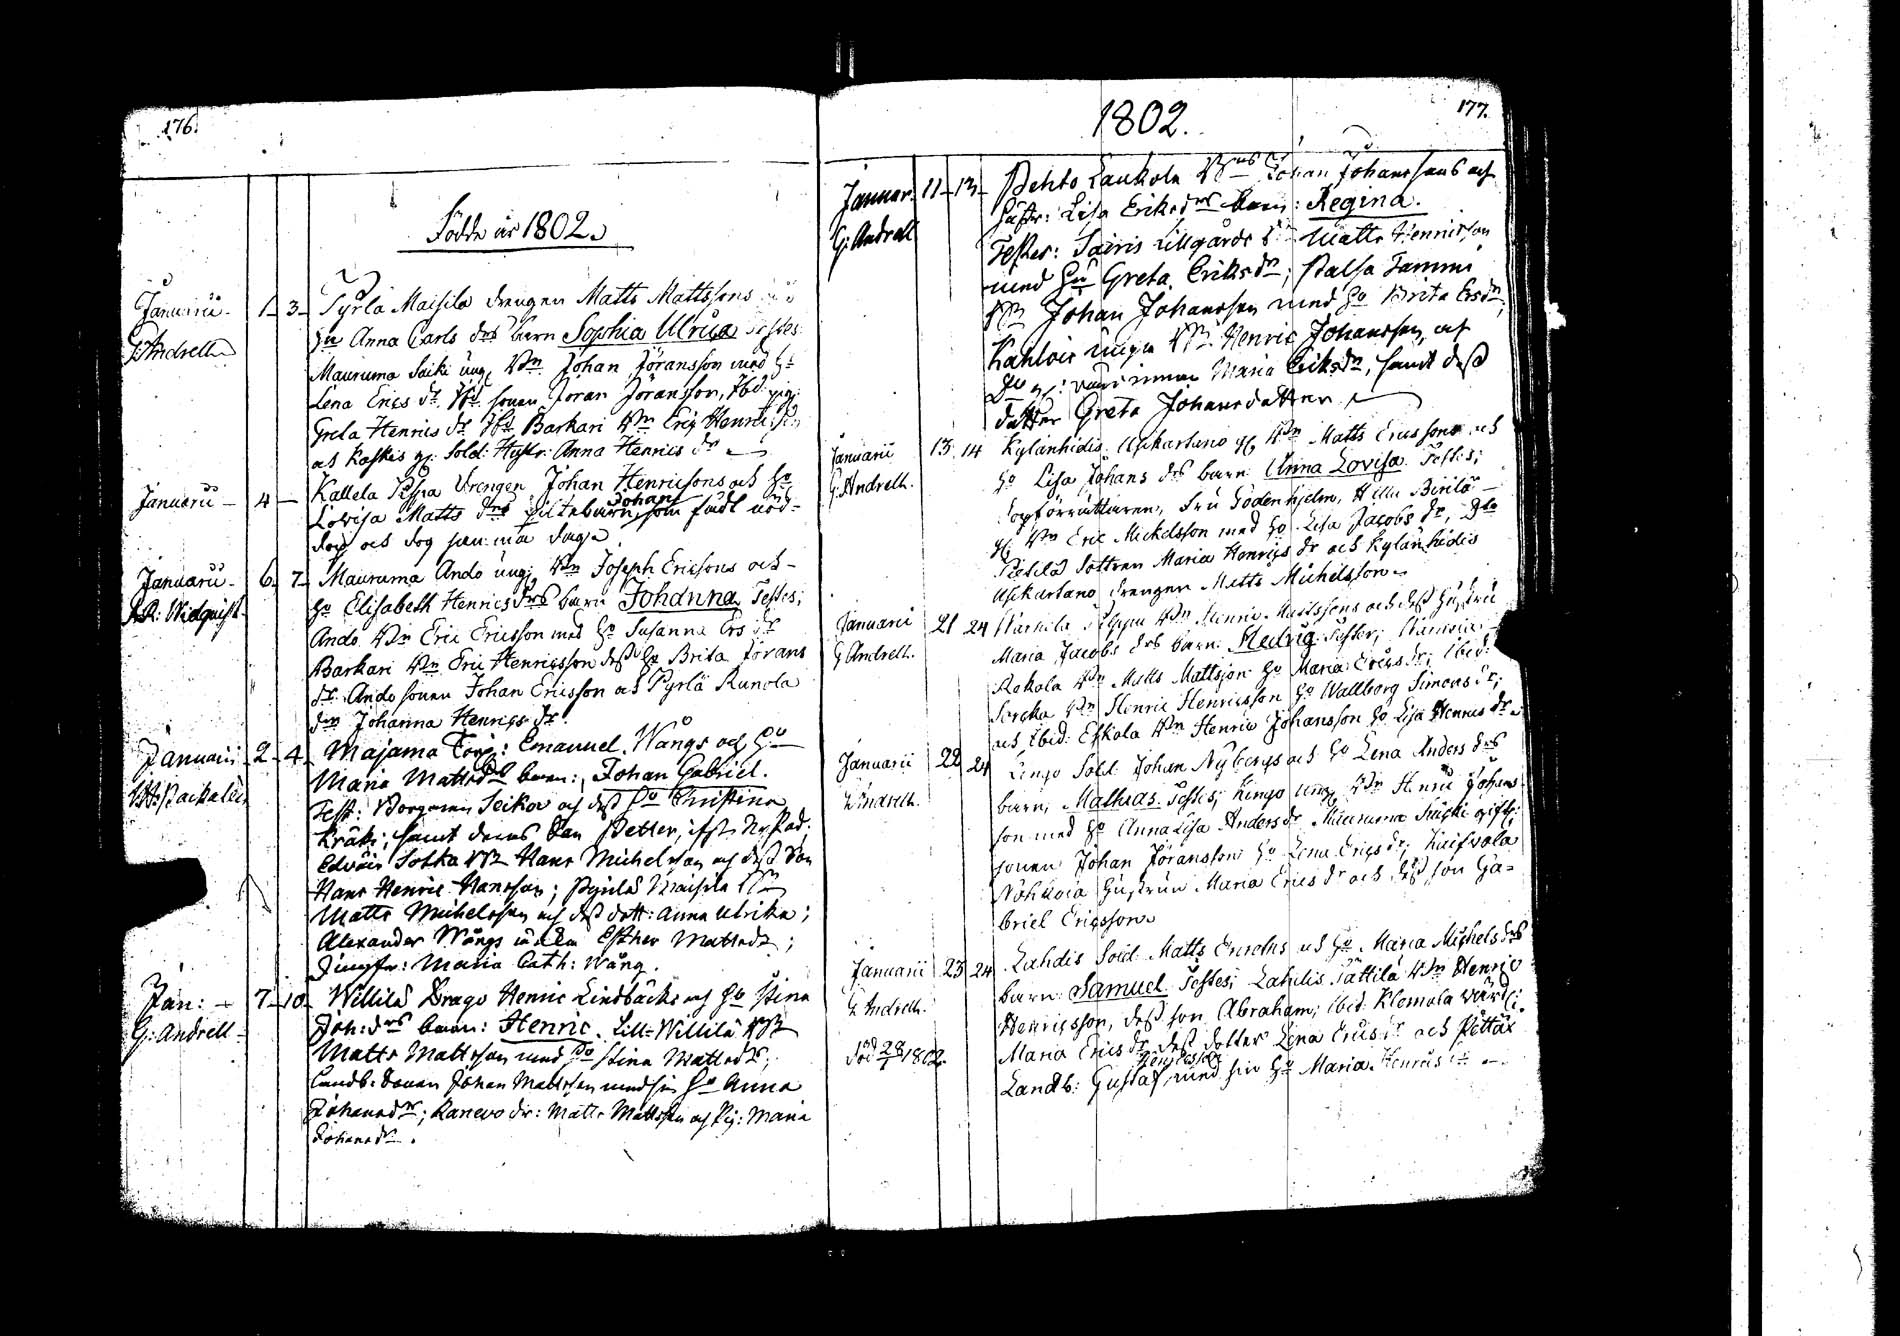 176.
Födde år 1802.
Januarii - 1 - 3 - Pyrlä Maisila drengen Matts Mattssons
G. Andrell Hu Anna Carls drs barn Sophia Ulrica Testes:
Mauruma Seiki ung. Bn Johan Jöransson med Ho
Lena Erics dr. Ibd. sonen Jöran Jöransson, Ibd. pig.
Greta Henrics dr Ibd Barkari Bn Eric Henricsson
och Kaskis g. Sold. Hustr. Anna Henrics dr
Januarii - 4 - Kallela Pispa Drengen Johan Henricsons och Ho
Johan
Lovisa Matts drs Piltebarn, som född nöd-
döpt och dog samma dag.
Januarii - 6 - 7 - Mauruma Ando ung. Bn Joseph Ericsons och -
A.R: Widquist. Ho Elisabeth Henrics drs barn Johanna Testes;
Ando Bn Eric Ericsson med Ho Susanna Ers dr
Barkari Bn Eric Henricsson dess Ho Brita Jörans
dr. Ando sonen Johan Ericsson och Pyrlä Runola
dn Johanna Henrics dr.
Januarii - 2 - 4 - Majama Torp: Emanuel Wångs och Ho
Maria Mattsdrs barn: Johan Gabriel.
Test: Borgaren Seikov och dess Ho Christina
Kräki; samt deras Son Petter;
Sotka Bn Hans Michelsson och dess Son
Hans Henric Hansson; Pyrilä Maisila Bn
Matts Michelsson och dess dott: Anna Ulrika;
Alexander Wångs Esther Mattsdr;
Jungfr: Maria Cath: Wång.
Jan: - 7 - 10 - Willilä Drago Henric Lindbäcks och Ho Stina
G: Andrell - Joh:drs barn: Henric. Lill-Willilä Bn
Matts Mattsson med Ho Stina Mattsdr;
Landb. Sonen Johan Mattsson med sin Ho Anna
Johansdr; Ranevo dr: Matts Mattsson och Pig: Maria
Johansdr.
1802.
177.
Januar. 11 - 13 - Pehto Laukola Bns Johan Johanssons och
G: Andrell Hustr: Lisa Eriksdrs barn: Regina.
Testes: Sairis Lillgårds Bn Matts Henricsson
med Hu Greta Eriksdr; Palsa Tammi
Bn Johan Johansson med Ho Brita Ersdr;
Kahlois unga Bn Henric Johansson, och
Maria Eriksdr, samt dess
dotter Greta Johansdotter
Januarii 13 14 Kylänhidis Uskartano g. Bn Matts Ericssons och
G. Andrell. Ho Lisa Johans drs barn Anna Lovisa. Testes;
Fru Södenhjelm, Hellu Birilä
g. Bn Eric Mickelsson med Ho Lisa Jacobs dr,
Pietilä dottren Maria Henrics dr och Kylänhidis
Uskartano drengen Matts Michelsson
Januarii 21 24 Bn Henric Mattssons och dess Hustru
G. Andrell. Maria Jacobs drs barn: Hedvig. Testes;
Rokola Bn Matts Mattsson Ho Maria Erics dr; Ibid:
Bn Henric Henricsson Ho Wallborg Simons dr;
och Ibid: Eskola Bn Henric Johansson Ho Lisa Henrics dr
Januarii 22 24 Lingo Sold. Johan Nybergs och Ho Lena Anders drs
G. Andrell. barn, Mathias. Testes; Lingo ung. Bn Henric Johans-
son med Ho Anna Lisa Anders dr Mauruma Seiki gifte
sonen Johan Jöransson Ho Lena Erics dr,
Hustrun Maria Erics dr och dess son Ga-
briel Ericsson
Januarii 23 24 Lahdis Sold Matts Enroths och Ho Maria Michels drs
G. Andrell. barn Samuel. Testes; Lahdis Pättilä Bn Henric
Henricsson, dess son Abraham; Ibid. Klemola
Död 28/1 1802. Maria Erics dr dess dotter Lena Erics dr och Pättäx
Henricsson
Landb: Gustaf, med sin Ho Maria Henrics dr -